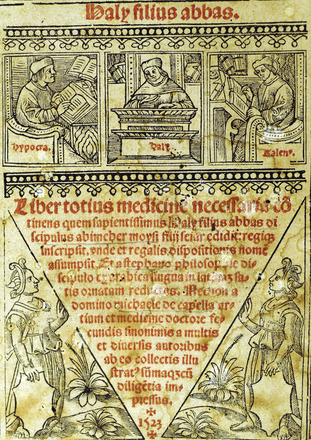 Haly filius abbas.
Hypocra. Haly. Galen9
Liber totius medicine necessaria cō
tinens quem sapientissimus Haly filius abbas di
scipulus abimeher moysi filij seiar edidit: regiqz
inscripsit. vnde et regalis dispositionis nomē
assumpsit. Et a stephano philosophie di
scipulo ex arabica lingua in latinā sa
tis ornatam reductus. Necnon a
domino michaele de capella ar
tium et medicine doctore fe
cundis sinonimis a multis
et diuersis autoribus
ab eo collectis illu
stratus summaqz cū
diligētia im
pressus.
1523